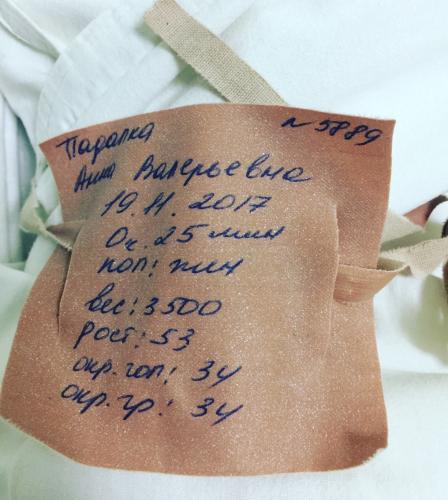 № 5889
Падалка
Анна Валерьевна
19.11.2017
0ч. 25 мин
пол: жин
вес: 3500
рост: 53
окр. гол: 34
окр. гр.: 34